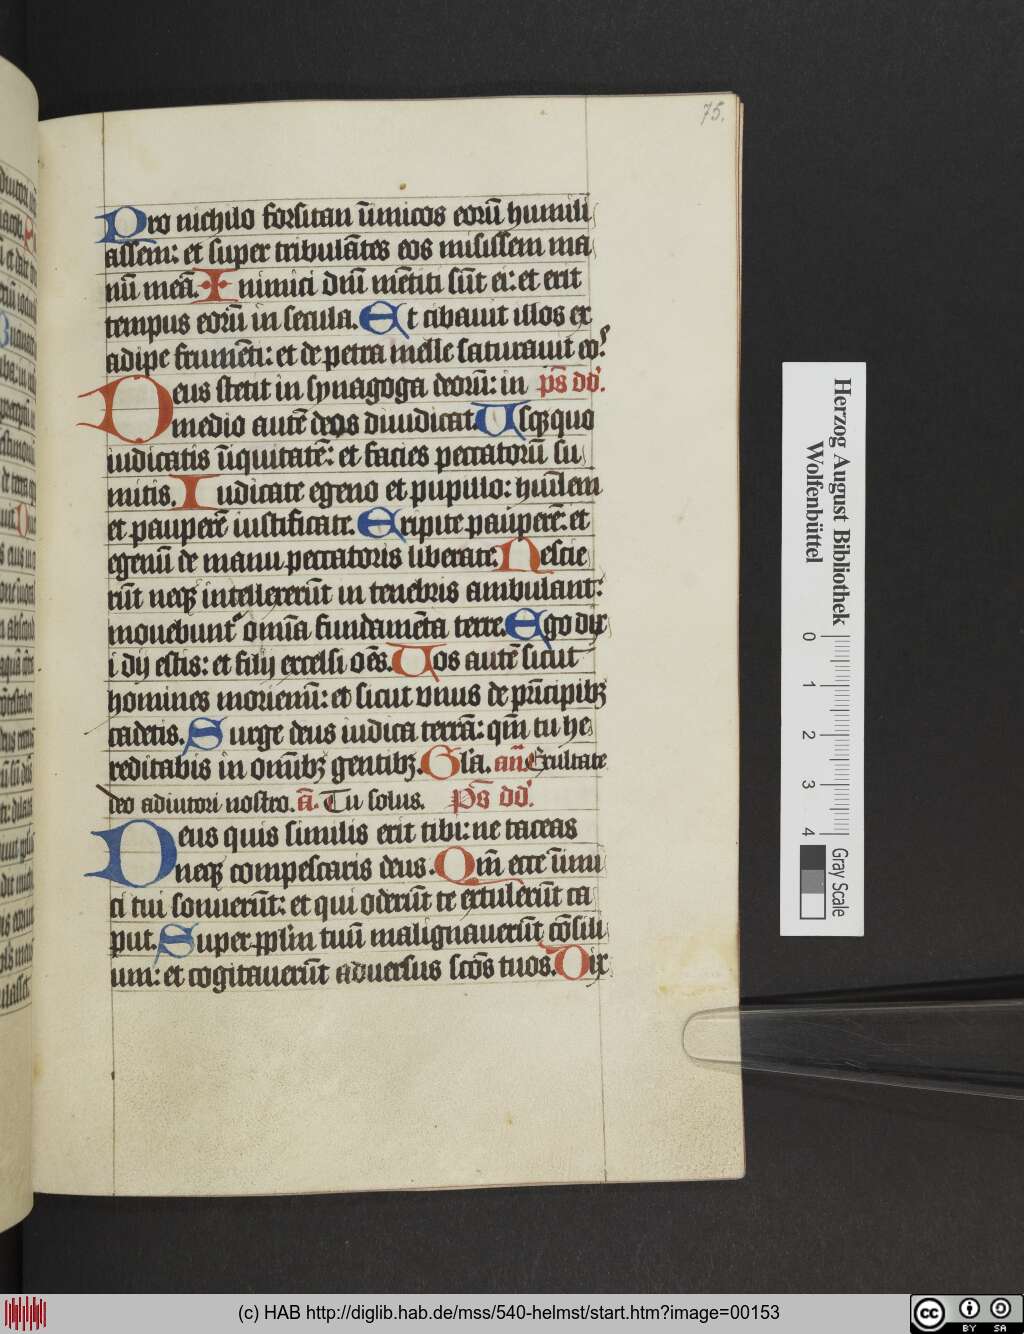 75.
Pro nichilo forsitan īimicos eorū humili
assem: et super tribulātes eos misissem ma
nū meā. Inimici dn̄i mētiti sūt ei: et erit
tempus eorū in secula. Et cibauit illos ex
adipe frumēti: et de petra melle saturauit eoˢ
Deus stetit in synagoga deorū: in p̄s dd'.
medio autē deos diiudicat. Usqꝫ quo
iudicatis īiquitatē: et facies peccatorū su
mitis. Iudicate egeno et pupillo: humīlem
et pauperē iustificate. Eripite pauperē: et
egenū de manu peccatoris liberate. Nescie
rūt neqꝫ intellexerūt in tenebris ambulant:
mouebunt᷑ omīa fundamēta terre. Ego dix
i dij estis: et filij excelsi oēs. Uos autē sicut
homines moriemī: et sicut vnus de prīcipibꝫ
cadetis. Surge deus iudica terrā: qm̄ tu he
reditabis in omībꝫ gentibꝫ. Gl'a. an̄. Exultate
deo adiutori nostro. ā. Tu solus. p̄s dd'.
Deus quis similis erit tibi: ne taceas
neqꝫ compescaris deus. Qm̄ ecce īimi
ci tui sonuerūt: et qui oderūt te extulerūt ca
put. Super pplm̄ tuū malignauerūt cōsili
um: et cogitauerūt aduersus scōs tuos. Dix
Herzog August Bibliothek
Wolfenbüttel
0 1 2 3 4
Gray Scale
(c) HAB http://diglib.hab.de/mss/540-helmst/start.htm?image=00153
cc BY SA